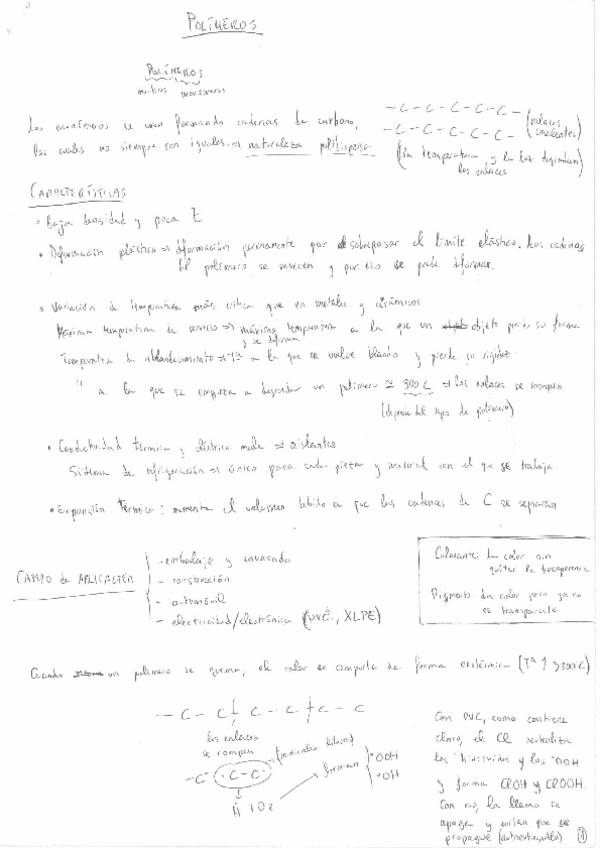 POLÍMEROS
POLÍMEROS
muchos monómeros
Los monómeros se unen formando cadenas de carbono,
las cuales no siempre son iguales ⇒ naturaleza polidispersa
-C-C-C-C-C-
-C-C-C-C-C-
(enlaces covalentes)
(la temperatura y la luz degradan los enlaces)
CARACTERÍSTICAS
• Baja densidad y poca E
• Deformación plástica ⇒ deformación permanente por sobrepasar el límite elástico. Las cadenas
del polímero se mueven y por eso se puede deformar.
• Variación de temperatura más crítica que en metales y cerámicos
Máxima temperatura de servicio ⇒ máxima temperatura a la que un objeto pierde su forma
y se deforma
Temperatura de ablandamiento ⇒ Tª a la que se vuelve blando y pierde su rigidez
" a la que se empieza a degradar un polímero ≃ 300 C ⇒ los enlaces se rompen
(depende del tipo de polímero)
• Conductividad térmica y eléctrica mala ⇒ aislantes
Sistema de refrigeración ⇒ único para cada pieza y material con el que se trabaja
• Expansión térmica: aumenta el volumen debido a que las cadenas de C se separan
CAMPO de APLICACIÓN
- embalaje y envasado
- construcción
- automóvil
- electricidad/electrónica (PVC, XLPE)
Colorante: da color sin
quitar la transparencia
Pigmento da color pero ya no
es transparente
Cuando un polímero se quema, el calor se comporta de forma exotérmica (Tª ↑ >300 C)
-C-C-C-C-C-C
los enlaces
se rompen
(radicales libres)
-C· ·C-C·
forman
·OOH
·OH
Con PVC, como contiene
cloro, el Cl neutraliza
los y los ·OOH
y forma ClOH y ClOOH.
Con eso, la llama se
apaga y evitan que se
propague (autoextinguible)
1